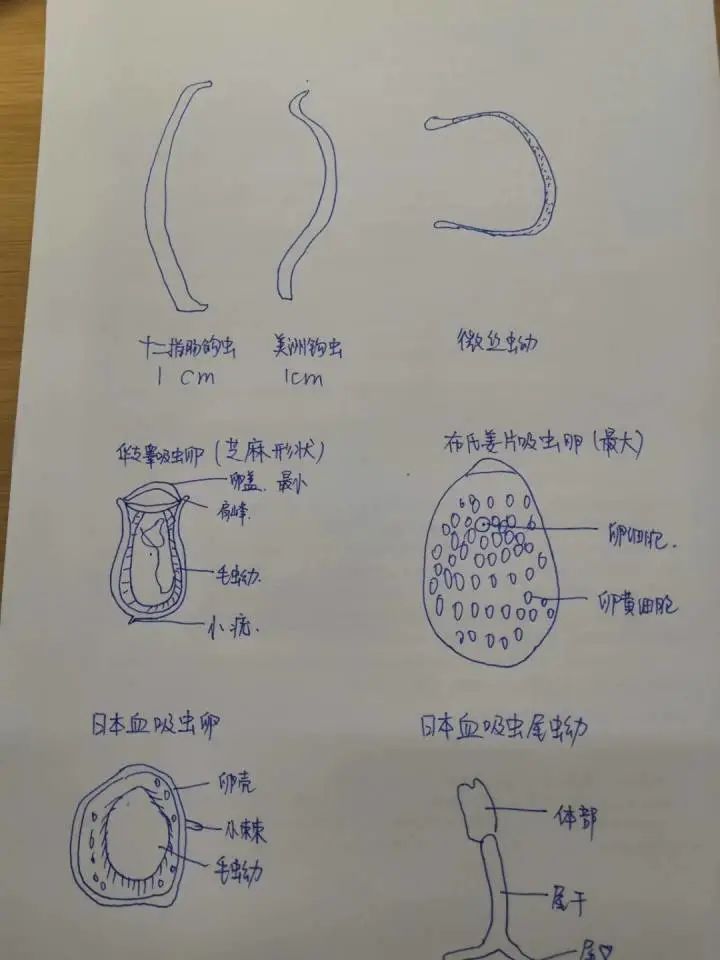 十二指肠钩虫
1 cm
美洲钩虫
1cm
微丝虫幼
华支睾吸虫卵(芝麻形状)
卵盖. 最小
肩峰.
毛虫幼.
小疣.
布氏姜片吸虫卵(最大)
卵细胞.
卵黄细胞
日本血吸虫卵
卵壳
小棘
毛虫幼
日本血吸虫尾虫幼
体部
尾干
尾